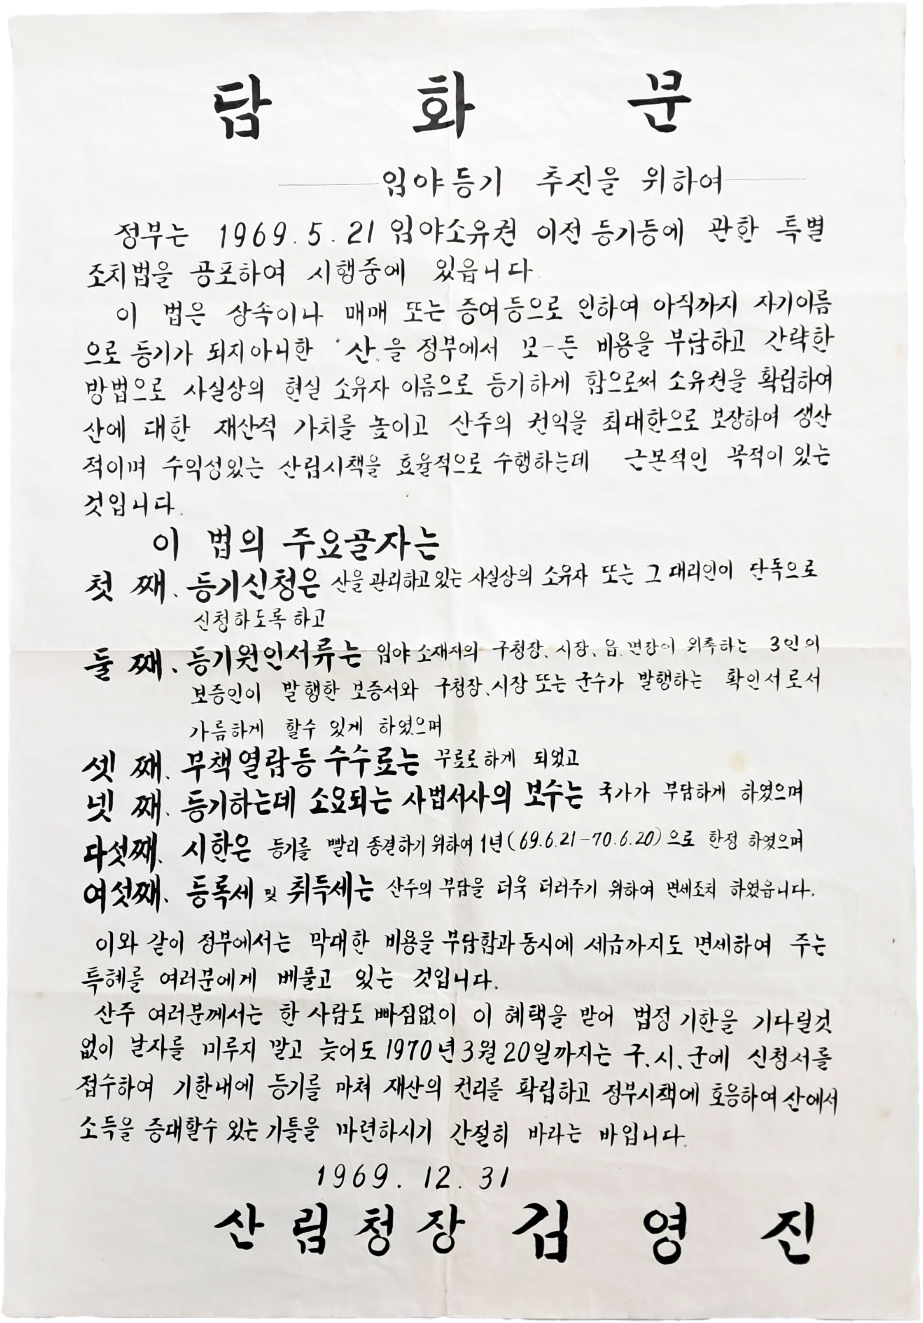 담 화 문
임야등기 추진을 위하여
정부는 1969.5.21 임야소유권 이전 등기등에 관한 특별
조치법을 공포하여 시행중에 있읍니다.
이 법은 상속이나 매매 또는 증여등으로 인하여 아직까지 자기이름
으로 등기가 되지아니한 "산"을 정부에서 모-든 비용을 부담하고 간략한
방법으로 사실상의 현실 소유자 이름으로 등기하게 함으로써 소유권을 확립하여
산에 대한 재산적 가치를 높이고 산주의 권익을 최대한으로 보장하여 생산
적이며 수익성있는 산림시책을 효율적으로 수행하는데 근본적인 목적이 있는
것입니다.
이 법의 주요골자는
첫 째. 등기신청은 산을 관리하고있는 사실상의 소유자 또는 그 대리인이 단독으로
신청하도록 하고
둘 째. 등기원인서류는 임야 소재지의 구청장, 시장, 읍.면장이 위촉하는 3인의
보증인이 발행한 보증서와 구청장,시장 또는 군수가 발행하는 확인서로서
가름하게 할수 있게 하였으며
셋 째. 부책열람등 수수료는 무료로하게 되었고
넷 째. 등기하는데 소요되는 사법서사의 보수는 국가가 부담하게 하였으며
다섯째. 시한은 등기를 빨리 종결하기위하여 1년(69.6.21-70.6.20)으로 한정 하였으며
여섯째. 등록세 및 취득세는 산주의 부담을 더욱 더러주기 위하여 면세조치 하였읍니다.
이와 같이 정부에서는 막대한 비용을 부담함과 동시에 세금까지도 면세하여 주는
특혜를 여러분에게 베풀고 있는 것입니다.
산주 여러분께서는 한 사람도 빠짐없이 이 혜택을 받어 법정 기한을 기다릴것
없이 날자를 미루지 말고 늦어도 1970년3월20일까지는 구.시.군에 신청서를
접수하여 기한내에 등기를 마쳐 재산의 권리를 확립하고 정부시책에 호응하여 산에서
소득을 증대할수 있는 기틀을 마련하시기 간절히 바라는 바입니다.
1969. 12. 31
산림청장 김 영 진